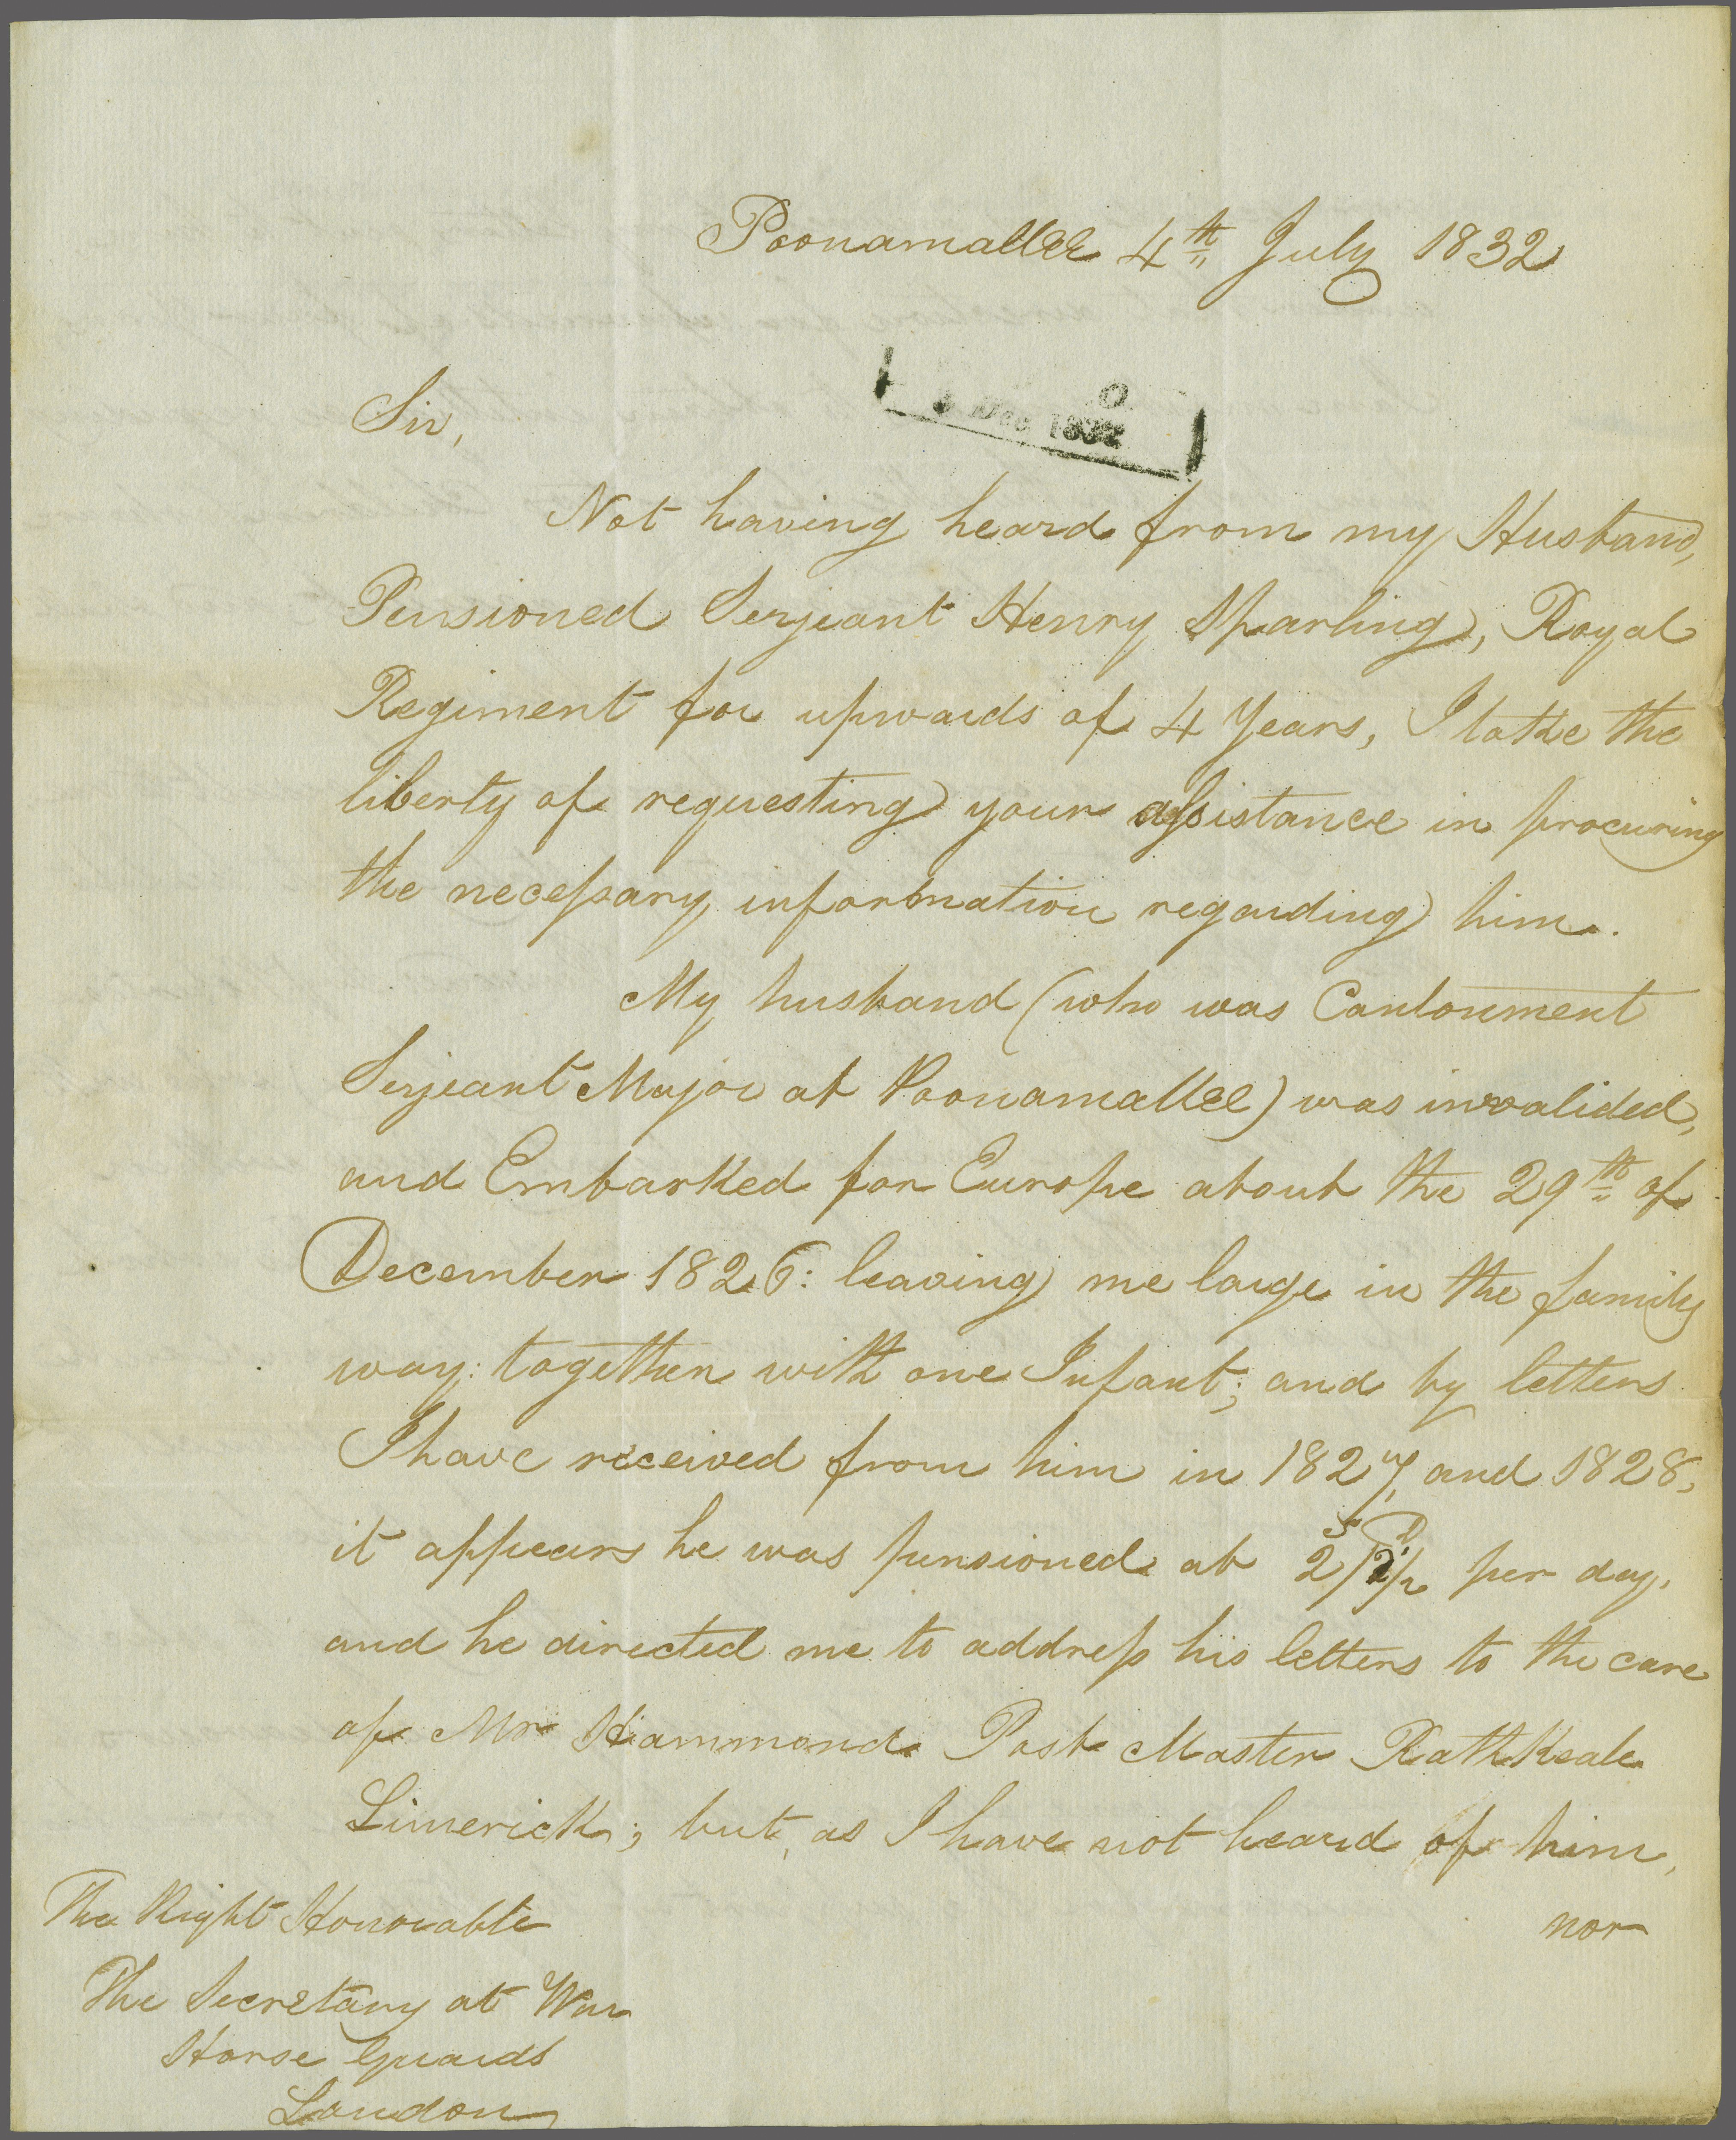 Poonamallee 4th July 1832
O
Dec 1832
Sir,
Not having heard from my Husband,
Pensioned Serjeant Henry Sparling, Royal
Regiment for upwards of 4 Years, I take the
liberty of requesting your assistance in procuring
the necessary information regarding him.
My husband (who was Cantonment
Serjeant Major at Poonamallee) was invalided,
and Embarked for Europe about the 29th of
December 1826: leaving me large in the family
way: together with one Infant; and by letters
I have received from him in 1827, and 1828,
it appears he was pensioned at 2s/2d½ per day,
and he directed me to address his letters to the care
of Mr Hammond Post Master RathKeale
Limerick; but, as I have not heard of him,
nor
The Right Honorable
The Secretary at War
Horse Guards
London